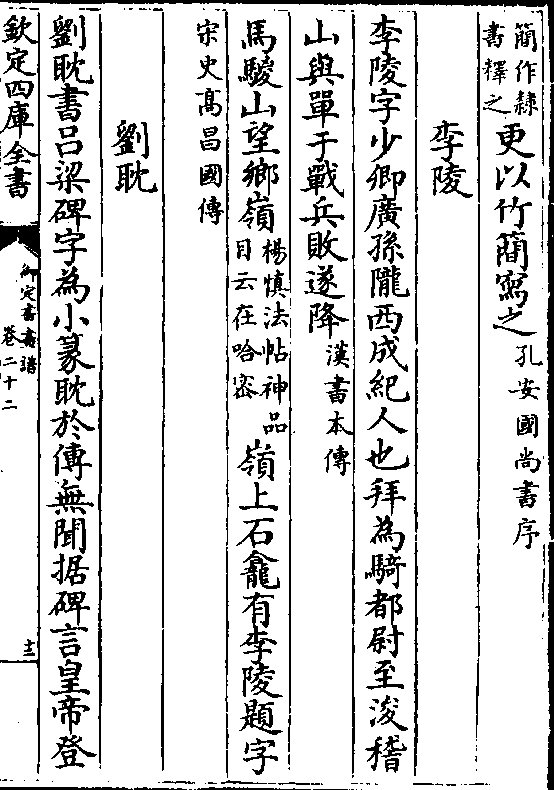 簡作隸
書釋之
更以竹簡寫之
孔安國尚書序
李陵
李陵字少卿廣孫隴西成紀人也拜為騎都尉至浚稽
山與單于戰兵敗遂降
漢書本傳
馬騣山望鄉嶺
楊慎法帖神品
目云在哈宻
嶺上石龕有李陵題字
宋史髙昌國傳
劉耽
劉耽書吕梁碑字為小篆耽於傳無聞据碑言皇帝登
欽定四庫全書
御定書畫譜
卷二十二
十二